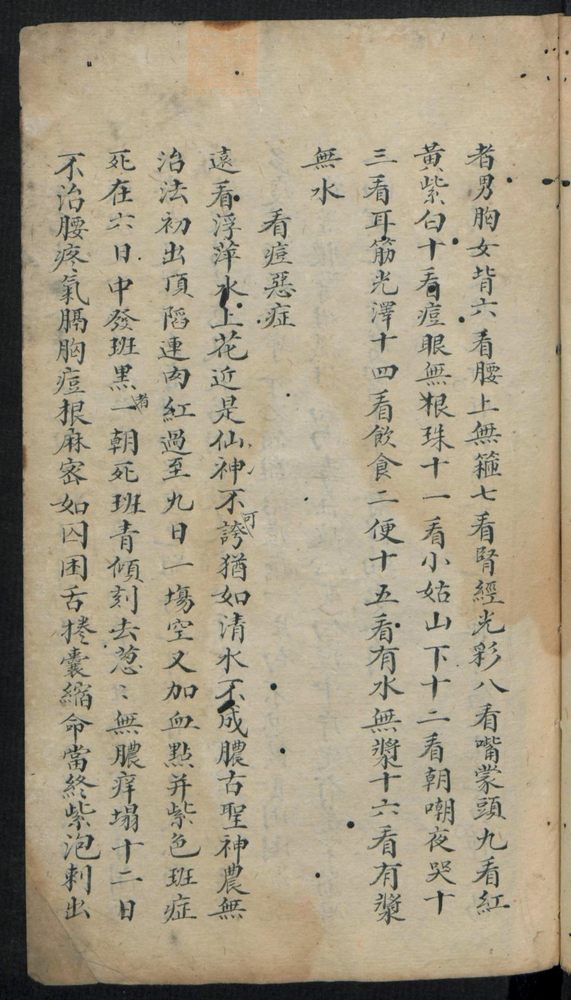 者男胸女背六看腰上無箍七看腎經光彩八看嘴蒙頭九看紅
黃紫白十看痘眼無根珠十一看小姑山下十二看朝嘲夜哭十
三看耳筋光澤十四看飲食二便十五看有水無漿十六看有漿
無水
看痘惡症
遠看浮萍水上花近是仙神不可誇猶如清水不成膿古聖神農無
治法初出頂陷連肉紅過至九日一塲空又加血點并紫色班症
死在六日中發班黑者一朝死班青傾刻去怱〻無膿痒塌十二日
不治腰疼氣膈胸痘根麻密如囚困舌捲囊縮命當終紫泡刺出